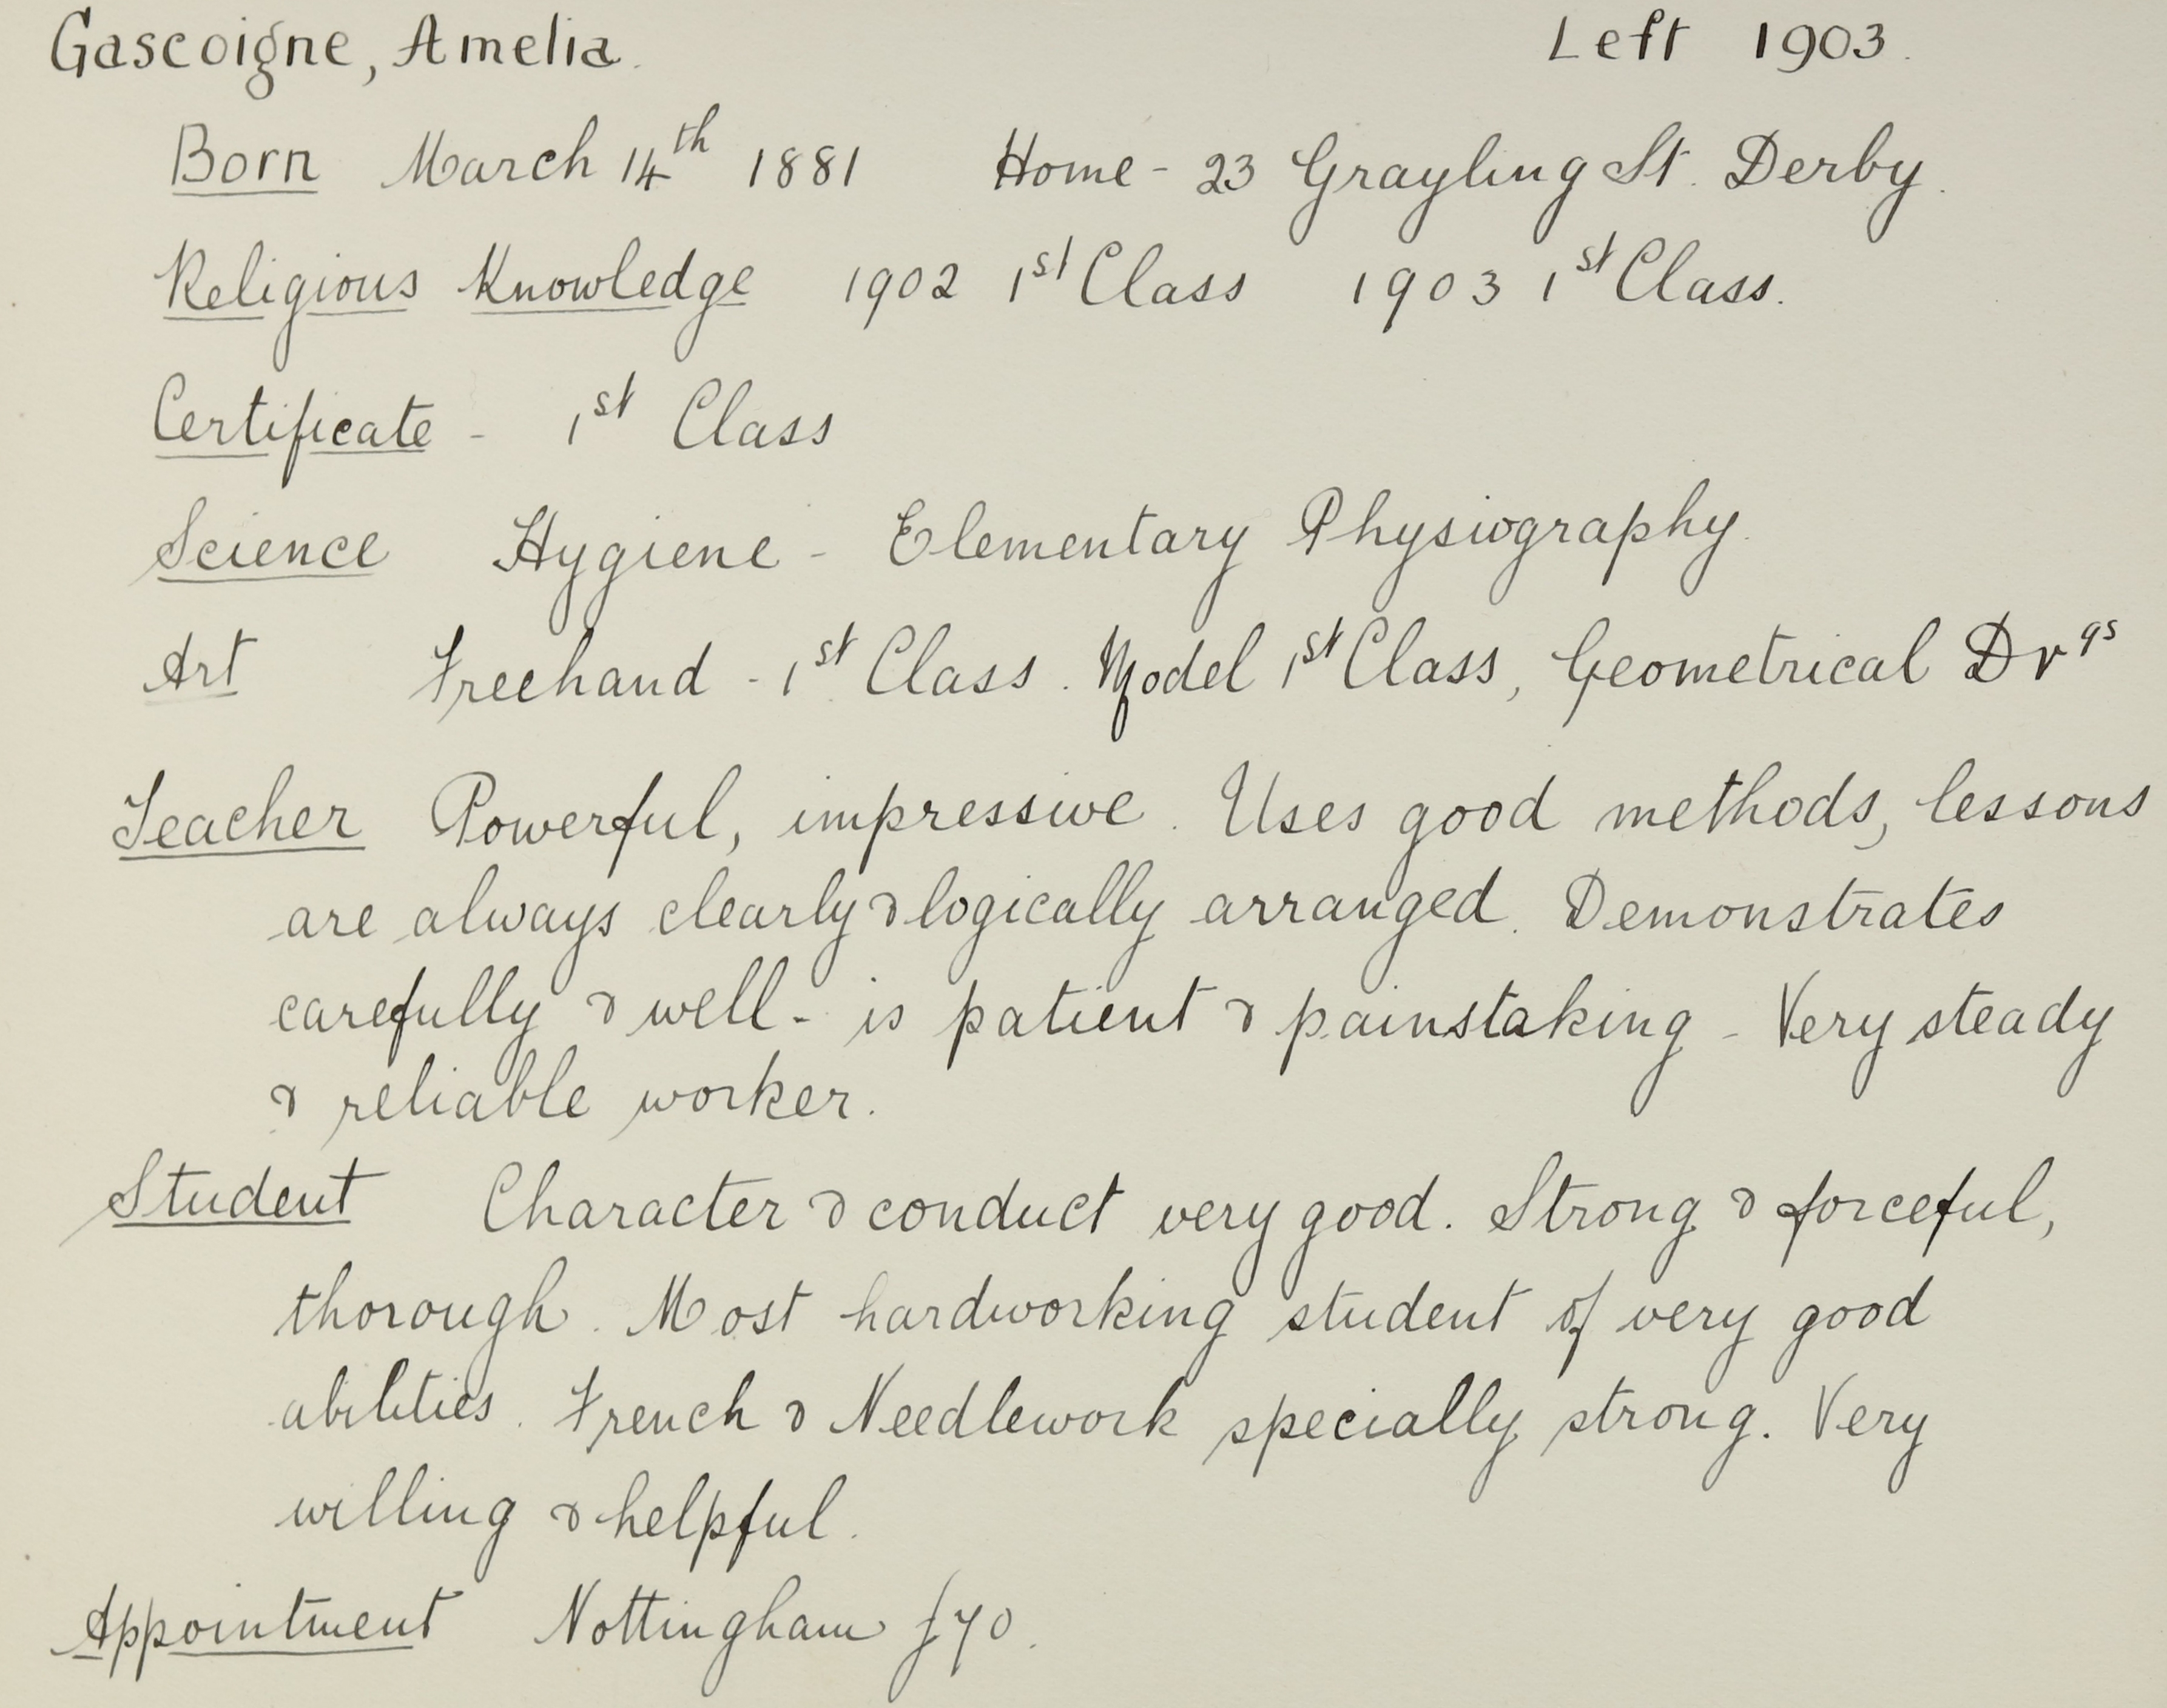 Gascoigne, Amelia. Left 1903.
Born March 14th 1881 Home - 23 Grayling St. Derby.
Religious Knowledge 1902 1st Class 1903 1st Class.
Certificate - 1st Class
Science Hygiene - Elementary Physiography.
Art Freehand - 1st Class. Model 1st Class, Geometrical Drgs
Teacher Powerful, impressive. Uses good methods, lessons
are always clearly & logically arranged. Demonstrates
carefully & well - is patient & painstaking - Very steady
& reliable worker.
Student Character & conduct very good. Strong & forceful,
thorough. Most hardworking student of very good
abilities. French & Needlework specially strong. Very
willing & helpful.
Appointment Nottingham £70.